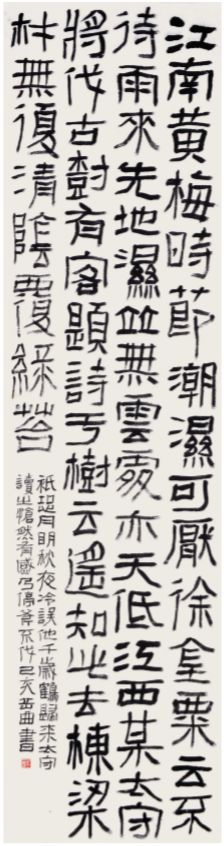 江南黃梅時節潮濕可厭徐金粟云不
待雨來先地濕並無雲處亦天低江西某太守
將伐古樹有客題詩于樹云遙知此去棟梁
材無復清陰覆綠苔
衹恐月明秋夜冷誤他千歲鶴歸來太守
讀之愴然有感乃停斧不伐己亥曲書